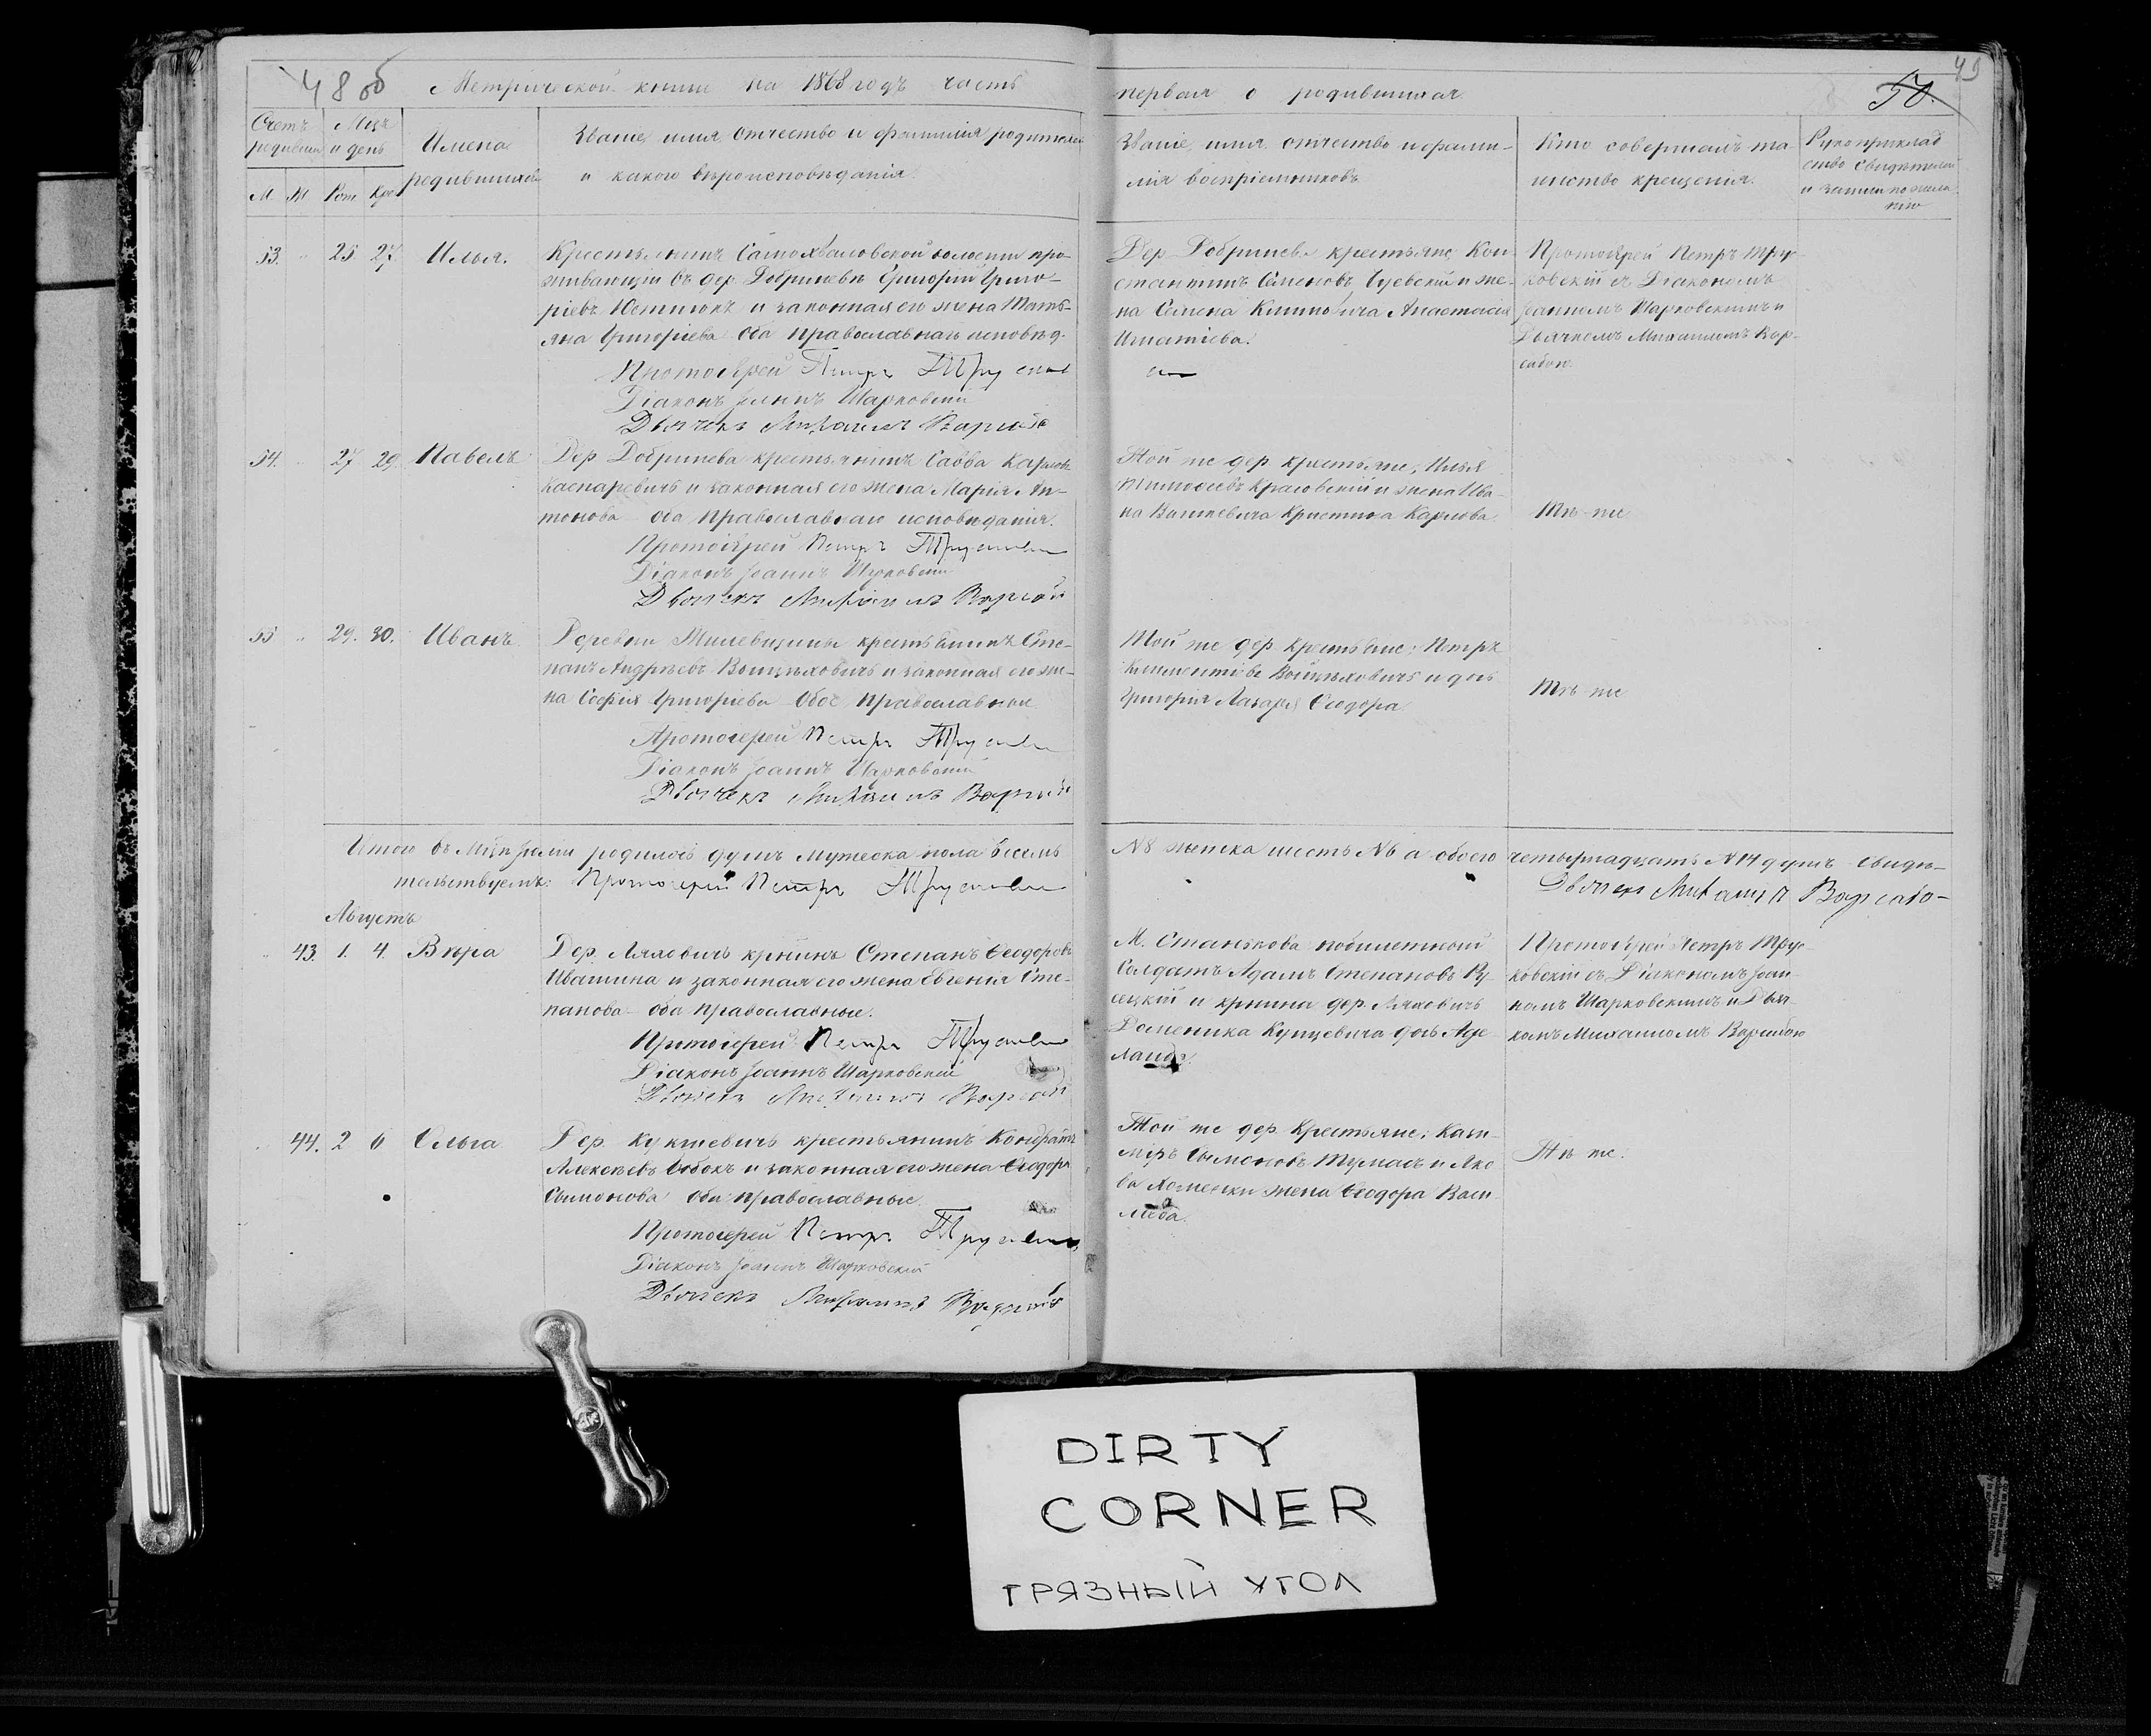 48 об
Метрической книги на 1868 годъ часть
первая о родившихся.
49
50.
Счетъ родивших
Мцъ и день
Имена родившихся
Званіе, имя, отчество и фамилія родителей
и какого вѣроисповѣданія.
Званіе, имя, отчество и фами-
лія воспріемниковъ
Кто совершалъ та-
инство крещенія.
Рукоприклад
ство свидѣтелей
и записи по жела
нію
М. Ж. Рож. Кре
53. 25 27. Илья.
Крестьянинъ Самохваловской волости про-
живающій въ дер. Добриневѣ Григорій Григо-
ріевъ и законная его жена Тать-
яна Григоріева оба православнаго исповѣд.
Протоіерей Петръ
Діаконъ Іоаннъ Шарковскій
Дьячекъ Михаилъ
Дер. Добринева крестьяне: Кон-
стантинъ Семеновъ и же-
на Семена Анастасія
Игнатіева.
Протоіерей Петръ Трус-
ковскій съ Діакономъ
Іоанномъ Шарковскимъ и
Дьячкомъ Михаиломъ Вар-
сабою.
54. 27 29 Павелъ
Дер. Добринева крестьянинъ Савва
Каспаревичъ и законная его жена Марія Ан-
тонова оба православнаго исповѣданія.
Протоіерей Петръ
Діаконъ Іоаннъ Шарковскій
Дьячекъ Михаилъ
Той же дер. крестьяне: Илья
Тимофеевъ Красовскій и жена Ива-
на Кристина Карлова.
Тѣ же
55 29. 30. Иванъ.
Деревни Милевщины крестьянинъ Сте-
панъ Андреевъ Войцѣховичъ и законная его же-
на Софія Григоріева обое православные
Протоіерей Петръ
Діаконъ Іоаннъ Шарковскій
Дьячекъ Михаилъ
Той же дер. крестьяне: Петръ
Климентіевъ Войцѣховичъ и дочь
Григорія Лазаря Ѳеодора
Тѣ же
Итого въ Мцѣ Іюли родилось душъ мужеска пола восемь
№8 женска шесть №6 а обоего четырнадцать №14 душъ свидѣ-
тельствуемъ: Протоіерей Петръ
Дьячекъ Михаилъ
Августъ
43. 1. 4. Вѣра
Дер. Ляховичъ крнинъ Степанъ Ѳеодоровъ
Ивашина и законная его жена Евгенія Сте-
панова оба православные.
Протоіерей Петръ
Діаконъ Іоаннъ Шарковскій
Дьячекъ
М. Станькова побилетный
Солдатъ Адамъ Степановъ Ру-
сецкій и крнина дер. Ляховичъ
Доменика Купцевича дочь Аде-
лаида.
Протоіерей Петръ Трус-
ковскій съ Діакономъ Іоан-
номъ Шарковскимъ и Дьяч-
комъ Михаиломъ Варсабою
44. 2 6 Ольга.
Дер. Кукшевичъ крестьянинъ Кондратъ
Алексѣевъ и законная его жена Ѳеодора
Сымонова оба православные
Протоіерей Петръ
Діаконъ Іоаннъ Шарковскій
Дьячекъ Михаилъ
Той же дер. крестьяне: Кази-
міръ Сымоновъ Тумасъ и Яко
ва Хоменки жена Ѳеодора Васи-
льева.
Тѣ же.
DIRTY
CORNER
ГРЯЗНЫЙ УГОЛ